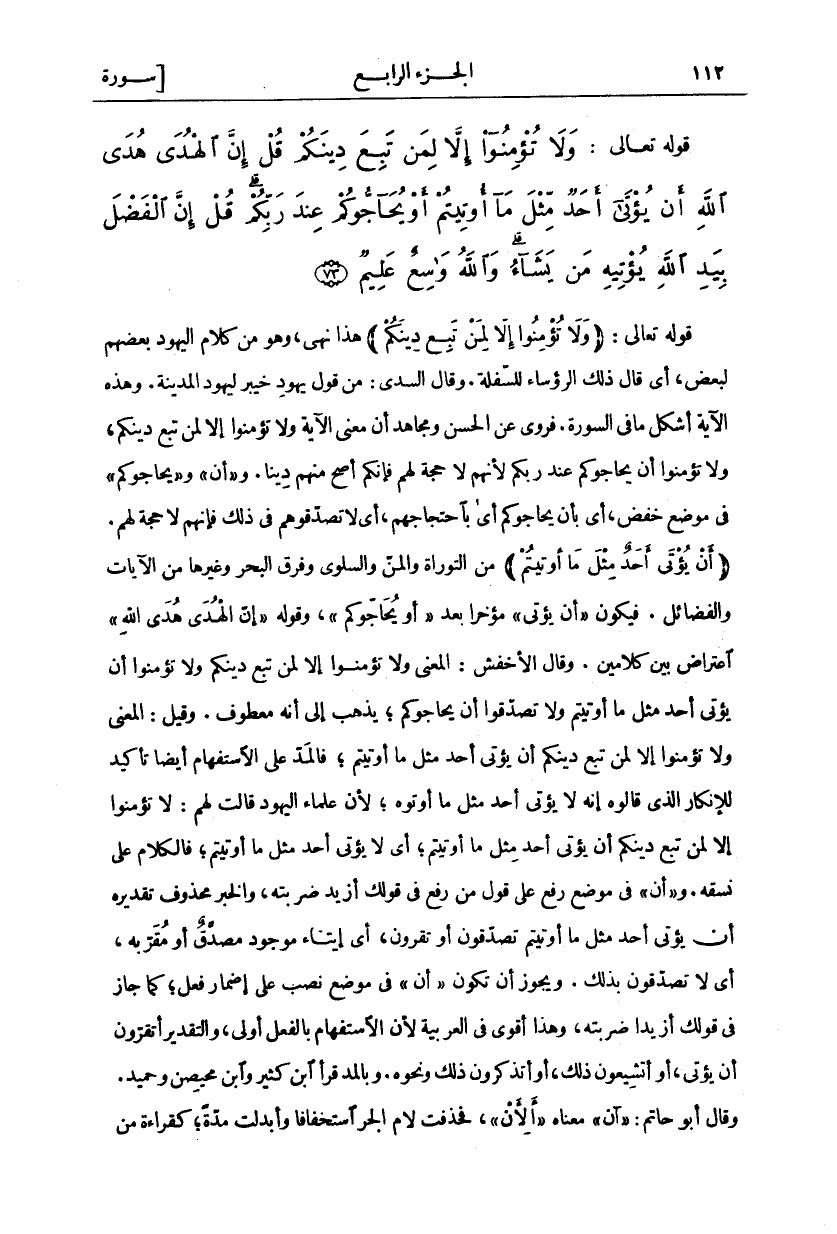 ١١٢ الجزء الرابع [ سورة
قوله تعالى : وَلَا تُؤْمِنُوٓا۟ إِلَّا لِمَن تَبِعَ دِينَكُمْ قُلْ إِنَّ ٱلْهُدَىٰ هُدَى
ٱللَّهِ أَن يُؤْتَىٰٓ أَحَدٌ مِّثْلَ مَآ أُوتِيتُمْ أَوْ يُحَآجُّوكُمْ عِندَ رَبِّكُمْ ۗ قُلْ إِنَّ ٱلْفَضْلَ
بِيَدِ ٱللَّهِ يُؤْتِيهِ مَن يَشَآءُ ۗ وَٱللَّهُ وَٰسِعٌ عَلِيمٌ ﴿٧٣﴾
قوله تعالى : ﴿ وَلَا تُؤْمِنُوا إِلَّا لِمَنْ تَبِعَ دِينَكُمْ ﴾ هذا نهى، وهو من كلام اليهود بعضهم
لبعض، أى قال ذلك الرؤساء للسّفلة. وقال السدى : من قول يهود خيبر ليهود المدينة. وهذه
الآية أشكل مافى السورة. فروى عن الحسن ومجاهد أن معنى الآية ولا تؤمنوا إلا لمن تبع دينكم،
ولا تؤمنوا أن يحاجوكم عند ربكم لأنهم لا حجة لهم فإنكم أصح منهم دِينا. و«أن» و«يحاجوكم»
فى موضع خفض، أى بأن يحاجوكم أى بآحتجاجهم، أى لا تصدّقوهم فى ذلك فإنهم لا حجة لهم.
﴿ أَنْ يُؤْتَى أَحَدٌ مِثْلَ مَا أُوتِيتُمْ ﴾ من التوراة والمنّ والسلوى وفرق البحر وغيرها من الآيات
والفضائل . فيكون «أن يؤتى» مؤخرا بعد « أو يُحَاجّوكم »، وقوله «إنّ الْهُدَى هُدَى اللهِ»
آعتراض بين كلامين . وقال الأخفش : المعنى ولا تؤمنوا إلا لمن تبع دينكم ولا تؤمنوا أن
يؤتى أحد مثل ما أوتيتم ولا تصدّقوا أن يحاجوكم ؛ يذهب إلى أنه معطوف . وقيل : المعنى
ولا تؤمنوا إلا لمن تبع دينكم أن يؤتى أحد مثل ما أوتيتم ؛ فالمدّ على الآستفهام أيضا تأكيد
للإنكار الذى قالوه إنه لا يؤتى أحد مثل ما أوتوه ؛ لأن علماء اليهود قالت لهم : لا تؤمنوا
إلا لمن تبع دينكم أن يؤتى أحد مِثل ما أوتيتم؛ أى لا يؤتى أحد مثل ما أوتيتم؛ فالكلام على
نسقه. و«أن» فى موضع رفع على قول من رفع فى قولك أزيد ضربته، والخبر محذوف تقديره
أن يؤتى أحد مثل ما أوتيتم تصدّقون أو تقرون، أى إيتاء موجود مصدَّقٌ أو مُقَرّ به ،
أى لا تصدّقون بذلك . ويجوز أن تكون « أن » فى موضع نصب على إضمار فعل؛ كما جاز
فى قولك أزيدا ضربته، وهذا أقوى فى العربية لأن الآستفهام بالفعل أولى، والتقدير أتقرّون
أن يؤتى، أو أتشيعون ذلك، أو أتذكرون ذلك ونحوه. وبالمد قرأ آبن كثير وآبن محيصن وحميد.
وقال أبو حاتم: «آن» معناه «أَلِأَنْ»، فحذفت لام الجر آستخفافا وأبدلت مدّة؛ كقراءة من